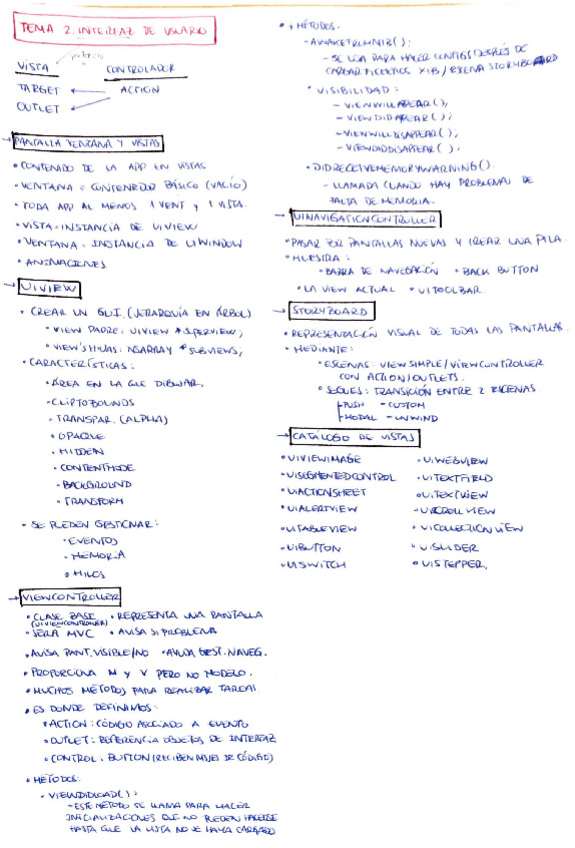 TEMA 2. INTERFAZ DE USUARIO
VISTA CONTROLADOR
TARGET ACTION
OUTLET
PANTALLA VENTANA Y VISTAS
• CONTENIDO DE LA APP EN VISTAS
• VENTANA = CONTENEDOR BÁSICO (VACÍO)
• TODA APP AL MENOS 1 VENT Y 1 VISTA.
• VISTA = INSTANCIA DE UIVIEW
• VENTANA = INSTANCIA DE UIWINDOW
• ANIMACIONES
→ UIVIEW
• CREAR UN GUI. (JERARQUÍA EN ÁRBOL)
• VIEW PADRE: UIVIEW *SUPERVIEW;
• VIEW'S HIJAS: NSARRAY *SUBVIEWS;
• CARACTERÍSTICAS:
• ÁREA EN LA QUE DIBUJAR.
• CLIPTOBOUNDS
• TRANSPAR. (ALPHA)
• OPAQUE
• HIDDEN
• CONTENTMODE
• BACKGROUND
• TRANSFORM
• SE PUEDEN GESTIONAR:
• EVENTOS
• MEMORIA
• HILOS
→ VIEWCONTROLLER
• CLASE BASE • REPRESENTA UNA PANTALLA
(UIVIEWCONTROLLER)
• SERÁ MVC • AVISA SI PROBLEMA
• AVISA PANT. VISIBLE/NO • AYUDA GEST. NAVEG.
• PROPORCIONA M Y V PERO NO MODELO.
• MUCHOS MÉTODOS PARA REALIZAR TAREAS
• ES DONDE DEFINIMOS:
• ACTION: CÓDIGO ASOCIADO A EVENTO
• OUTLET: REFERENCIA OBJETOS DE INTERFAZ
• CONTROL: BUTTON (RECIBEN DE CÓDIGO)
• MÉTODOS:
• VIEWDIDLOAD():
- ESTE MÉTODO SE LLAMA PARA HACER
INICIALIZACIONES QUE NO PUEDEN HACERSE
HASTA QUE LA VISTA NO SE HAYA CARGADO
• + MÉTODOS.
- AWAKEFROMNIB():
- SE USA PARA HACER CONFIGS DESPUÉS DE
CARGAR FICHEROS XIB / ESCENA STORYBOARD
• VISIBILIDAD:
- VIEWWILLAPPEAR();
- VIEWDIDAPPEAR();
- VIEWWILLDISAPPEAR();
- VIEWDIDDISAPPEAR();
• DIDRECEIVEMEMORYWARNING()
- LLAMADA CUANDO HAY PROBLEMAS DE
FALTA DE MEMORIA.
→ UINAVIGATIONCONTROLLER
• PASAR POR PANTALLAS NUEVAS Y CREAR UNA PILA.
• MUESTRA:
• BARRA DE NAVEGACIÓN • BACK BUTTON
• LA VIEW ACTUAL • UITOOLBAR.
→ STORYBOARD
• REPRESENTACIÓN VISUAL DE TODAS LAS PANTALLAS.
• MEDIANTE:
• ESCENAS: VIEW SIMPLE/VIEWCONTROLLER
CON ACTION/OUTLETS.
• SEGUES: TRANSICIÓN ENTRE 2 ESCENAS
- PUSH - CUSTOM
- MODAL - UNWIND
→ CATÁLOGO DE VISTAS
• UIVIEWIMAGE • UIWEBVIEW
• UISEGMENTEDCONTROL • UITEXTFIELD
• UIACTIONSHEET • UITEXTVIEW
• UIALERTVIEW • UISCROLLVIEW
• UITABLEVIEW • UICOLLECTIONVIEW
• UIBUTTON • UISLIDER
• UISWITCH • UISTEPPER.